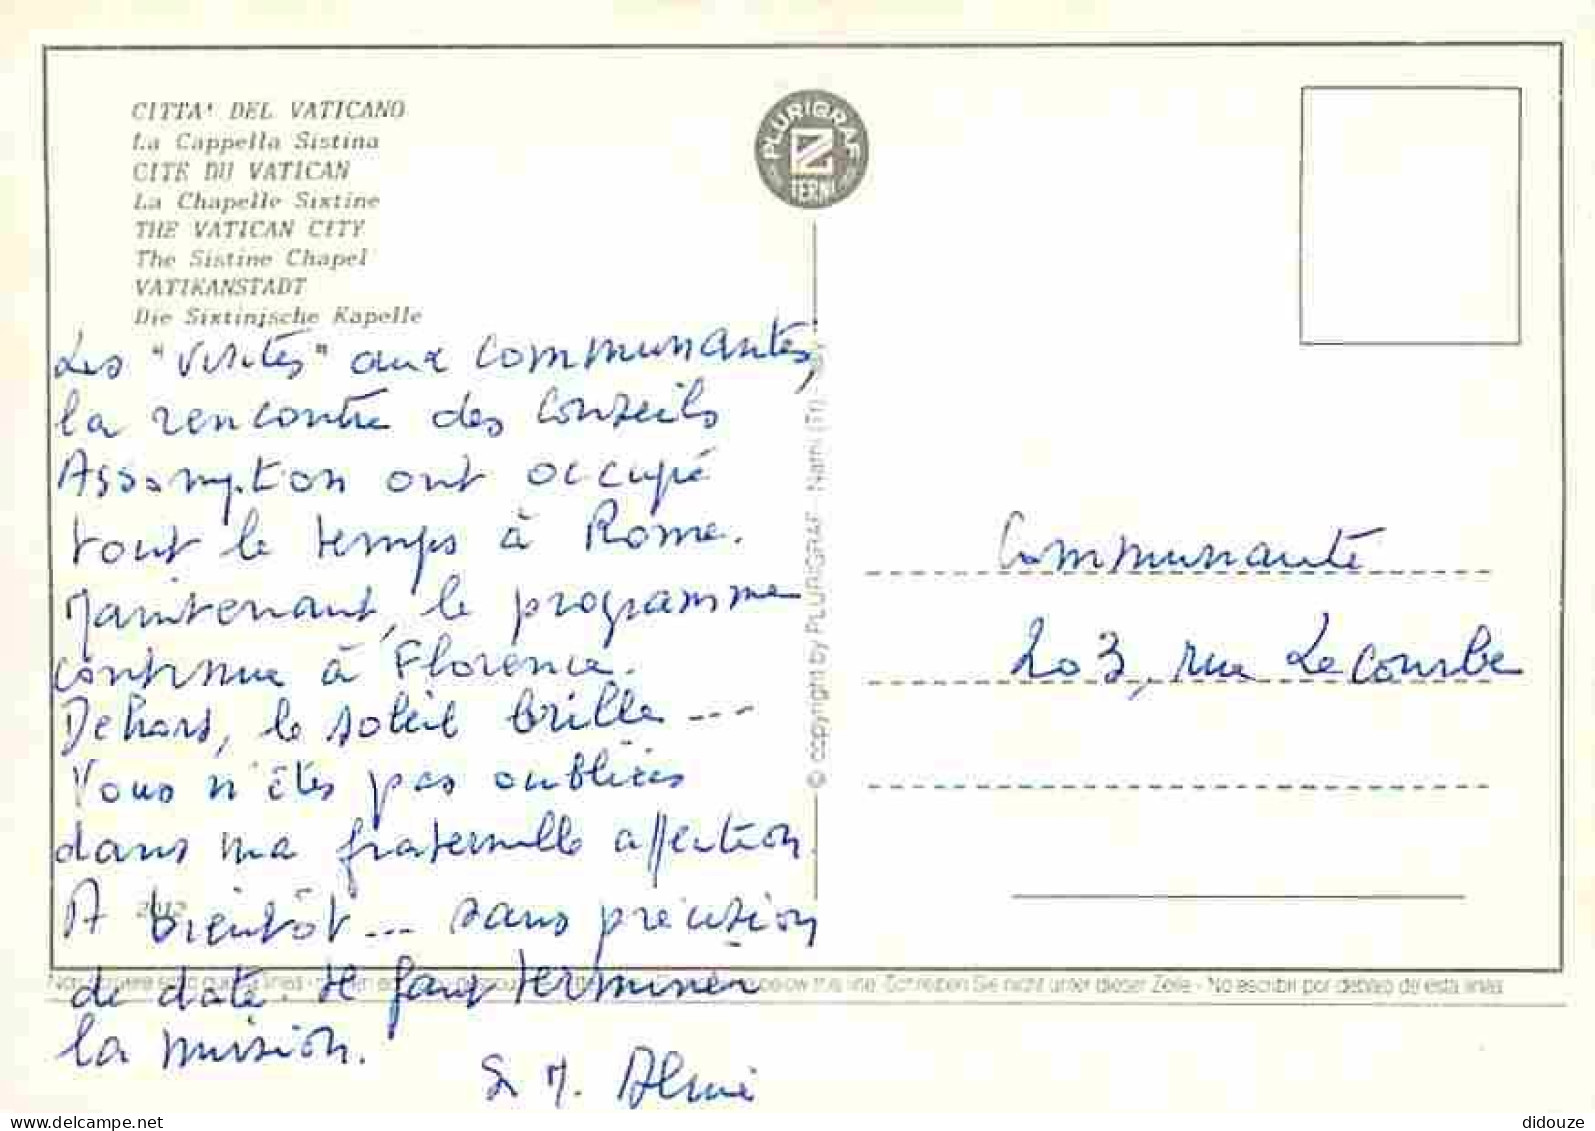 CITTA' DEL VATICANO
La Cappella Sistina
CITE DU VATICAN
La Chapelle Sixtine
THE VATICAN CITY
The Sistine Chapel
VATIKANSTADT
Die Sixtinische Kapelle
PLURIGRAF
TERNI
Les "visites" aux communautés,
la rencontre des Conseils
Assomption ont occupé
tout le temps à Rome.
Maintenant, le programme
continue à Florence.
Dehors, le soleil brille ---
Vous n'êtes pas oubliées
dans ma fraternelle affection.
A bientôt --- sans précision
de date. Il faut terminer
la mission.
Sr M.
© copyright by PLURIGRAF - Narni (Tr) -
Communauté
203, rue Lecourbe
below this line Schreiben Sie nicht unter dieser Zeile - No escribir por debajo de esta linea
www.delcampe.net
didouze